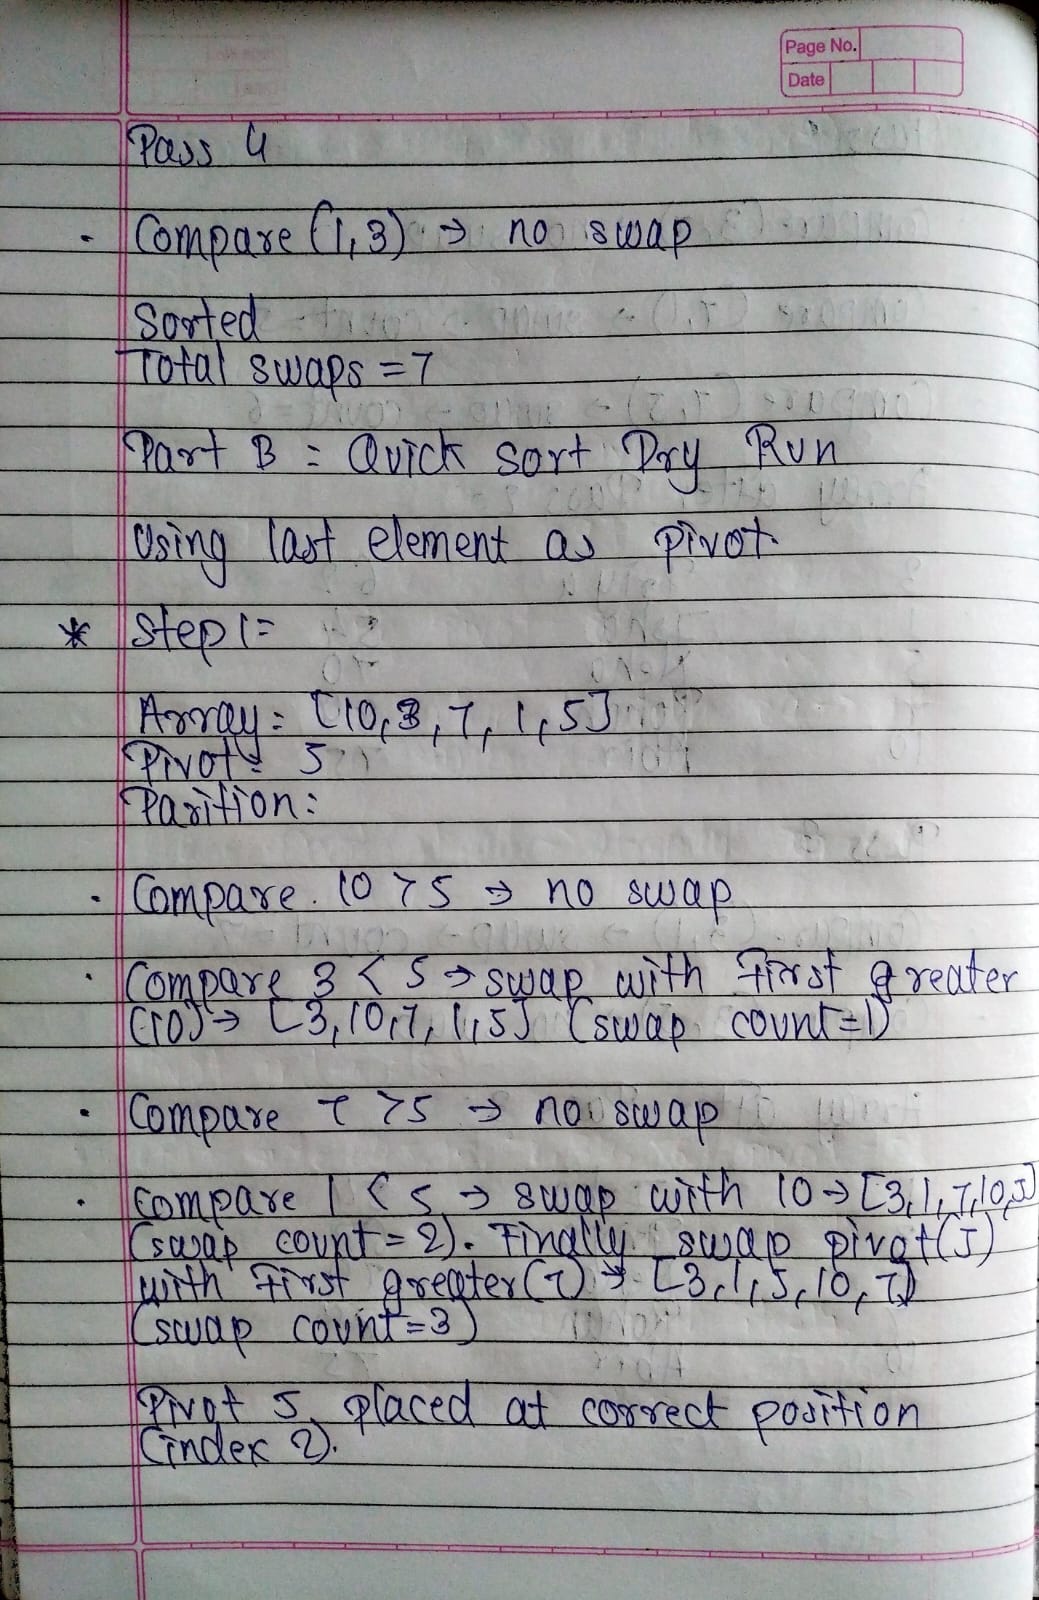 Page No.
Date
Pass 4
. Compare (1,3) → no swap
Sorted
Total swaps = 7
Part B = Quick Sort Dry Run
Using last element as pivot.
* Step 1 =
Array = [10, 3, 7, 1, 5]
Pivot = 5
Parition:
. Compare. 10 > 5 → no swap
. Compare 3 < 5 → swap with first greater
(10) → [3, 10, 7, 1, 5] (swap count = 1)
. Compare 7 > 5 → no swap
. Compare 1 < 5 → swap with 10 → [3, 1, 7, 10, 5]
(swap count = 2). Finally swap pivot (5)
with first greater (7) → [3, 1, 5, 10, 7]
(swap count = 3)
Pivot 5 placed at correct position
(index 2).